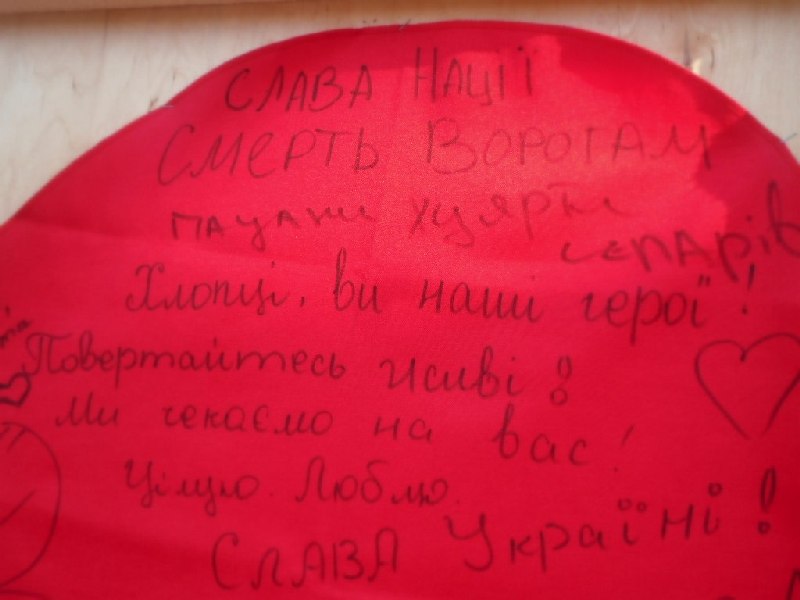 СЛАВА НАЦІЇ
СМЕРТЬ ВОРОГАМ
пацани хуярти
сепарів
Хлопці, ви наші герої!
Повертайтесь живі!
Ми чекаємо на вас!
Цілую. Люблю.
СЛАВА Україні!